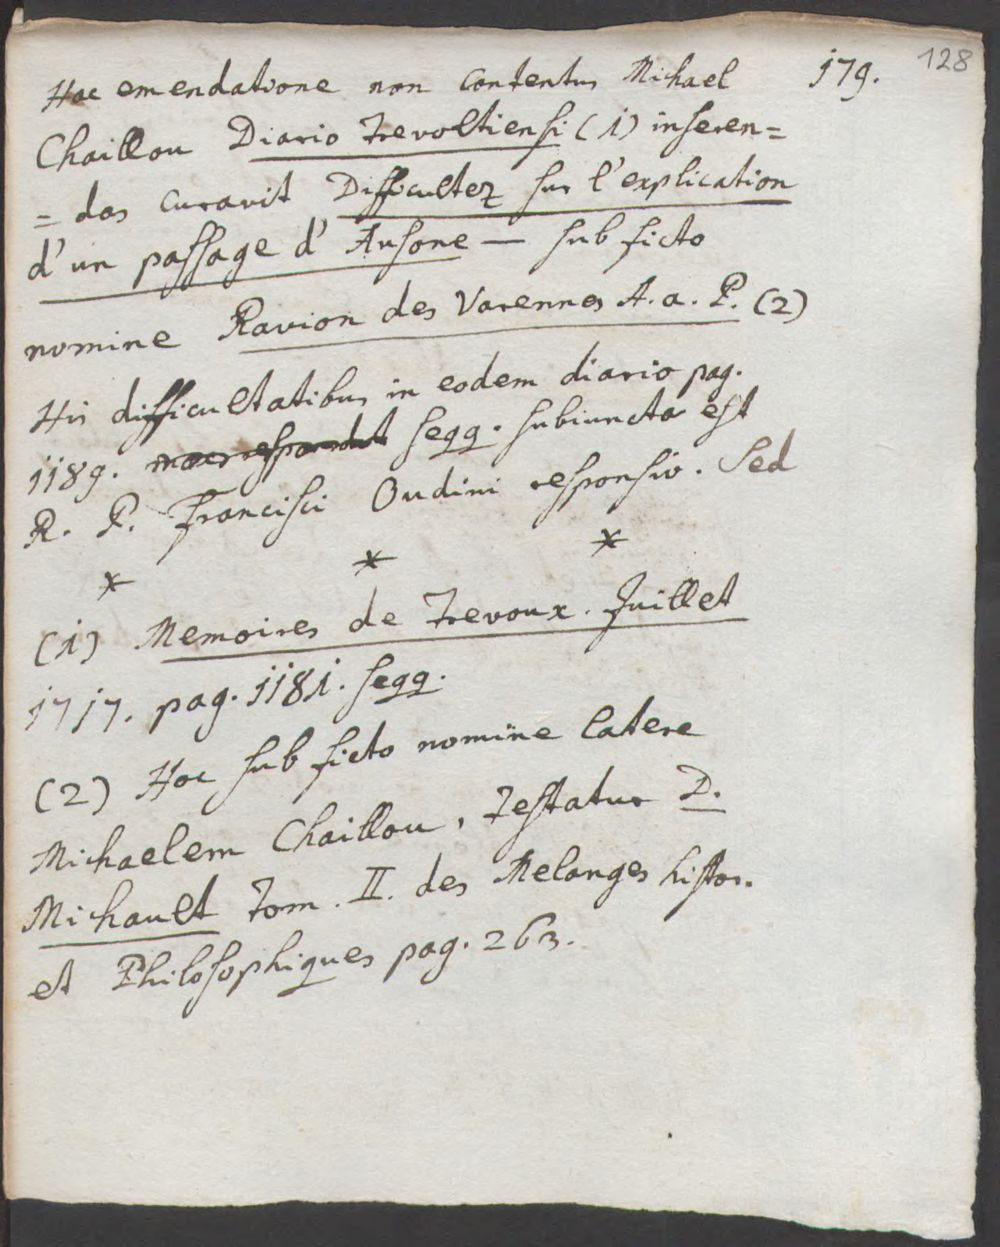 128
Hac emendatione non contentus Michael 179.
Chaillou Diario Trevoltiensi (1) inseren=
= das curavit Difficultez sur l'explication
d'un passage d'Ausone — sub ficto
nomine Ravion des Varennes A. a. P. (2)
His difficultatibus in eodem diario pag.
1189. seqq. subiuncta est
R. P. Francisci Oudini responsio. Sed
* * *
(1) Memoires de Trevoux. Juillet
1717. pag. 1181. seqq.
(2) Hoc sub ficto nomine latere
Michaelem Chaillou, testatur D.
Michault Tom. II. des Melanges histor.
et Philosophiques pag. 263.